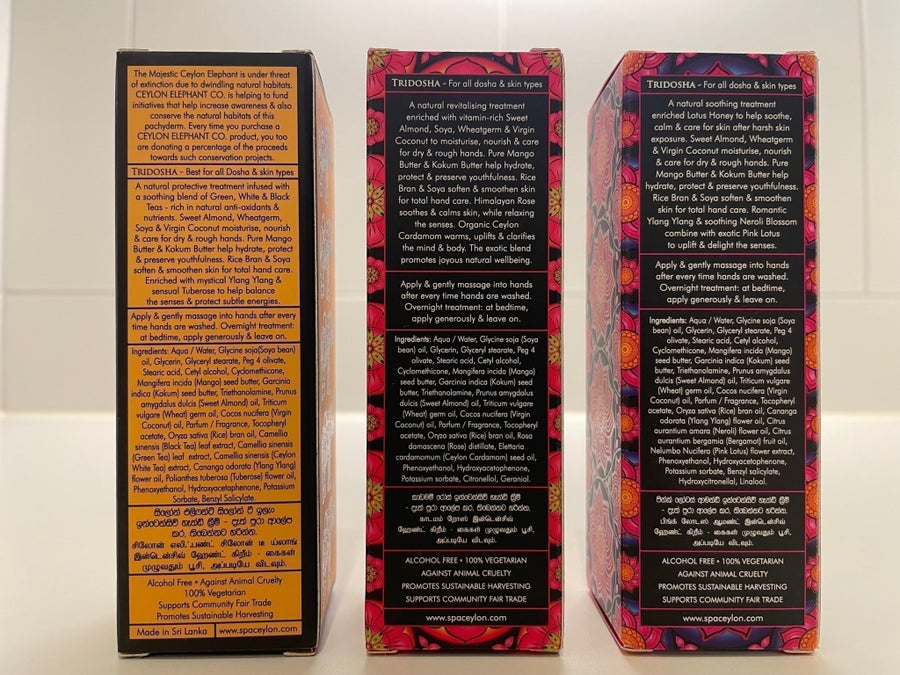 The Majestic Ceylon Elephant is under threat
of extinction due to dwindling natural habitats.
CEYLON ELEPHANT CO. is helping to fund
initiatives that help increase awareness & also
conserve the natural habitats of this
pachyderm. Every time you purchase a
CEYLON ELEPHANT CO. product, you too
are donating a percentage of the proceeds
towards such conservation projects.
TRIDOSHA - Best for all Dosha & skin types
A natural protective treatment infused with
a soothing blend of Green, White & Black
Teas - rich in natural anti-oxidants &
nutrients. Sweet Almond, Wheatgerm,
Soya & Virgin Coconut moisturise, nourish
& care for dry & rough hands. Pure Mango
Butter & Kokum Butter help hydrate, protect
& preserve youthfulness. Rice Bran & Soya
soften & smoothen skin for total hand care.
Enriched with mystical Ylang Ylang &
sensual Tuberose to help balance
the senses & protect subtle energies.
Apply & gently massage into hands after every
time hands are washed. Overnight treatment:
at bedtime, apply generously & leave on.
Ingredients: Aqua / Water, Glycine soja(Soya bean)
oil, Glycerin, Glyceryl stearate, Peg 4 olivate,
Stearic acid, Cetyl alcohol, Cyclomethicone,
Mangifera incida (Mango) seed butter, Garcinia
indica (Kokum) seed butter, Triethanolamine, Prunus
amygdalus dulcis (Sweet Almond) oil, Triticum
vulgare (Wheat) germ oil, Cocos nucifera (Virgin
Coconut) oil, Parfum / Fragrance, Tocopheryl
acetate, Oryza sativa (Rice) bran oil, Camellia
sinensis (Black Tea) leaf extract, Camellia sinensis
(Green Tea) leaf extract, Camellia sinensis (Ceylon
White Tea) extract, Cananga odorata (Ylang Ylang)
flower oil, Polianthes tuberosa (Tuberose) flower oil,
Phenoxyethanol, Hydroxyacetophenone, Potassium
Sorbate, Benzyl Salicylate.
සිලෝන් එලිෆන්ට් සිලෝන් ටී ඉලෑං
ඉන්ටෙන්සිව් හෑන්ඩ් ක්‍රීම්
- දෑත් පුරා ආලේප
කර, තිබෙන්නට හරින්න.
சிலோன் எலிபண்ட் சிலோன் டீ யலாங்
இன்டென்சிவ் ஹேண்ட் கிறீம் - கைகள்
முழுவதும் பூசி, அப்படியே விடவும்.
Alcohol Free • Against Animal Cruelty
100% Vegetarian
Supports Community Fair Trade
Promotes Sustainable Harvesting
Made in Sri Lanka www.spaceylon.com
TRIDOSHA - For all dosha & skin types
A natural revitalising treatment
enriched with vitamin-rich Sweet
Almond, Soya, Wheatgerm & Virgin
Coconut to moisturise, nourish & care
for dry & rough hands. Pure Mango
Butter & Kokum Butter help hydrate,
protect & preserve youthfulness. Rice
Bran & Soya soften & smoothen skin
for total hand care. Himalayan Rose
soothes & calms skin, while relaxing
the senses. Organic Ceylon
Cardamom warms, uplifts & clarifies
the mind & body. The exotic blend
promotes joyous natural wellbeing.
Apply & gently massage into hands
after every time hands are washed.
Overnight treatment: at bedtime,
apply generously & leave on.
Ingredients: Aqua / Water, Glycine soja (Soya
bean) oil, Glycerin, Glyceryl stearate, Peg 4
olivate, Stearic acid, Cetyl alcohol,
Cyclomethicone, Mangifera incida (Mango)
seed butter, Garcinia indica (Kokum) seed
butter, Triethanolamine, Prunus amygdalus
dulcis (Sweet Almond) oil, Triticum vulgare
(Wheat) germ oil, Cocos nucifera (Virgin
Coconut) oil, Parfum / Fragrance, Tocopheryl
acetate, Oryza sativa (Rice) bran oil, Rosa
damascena (Rose) distillate, Elettaria
cardamomum (Ceylon Cardamom) seed oil,
Phenoxyethanol, Hydroxyacetophenone,
Potassium sorbate, Citronellol, Geraniol.
කාඩමම් රෝස් ඉන්ටෙන්සිව් හෑන්ඩ් ක්‍රීම්
- දෑත් පුරා ආලේප කර, තිබෙන්නට හරින්න.
காடமம் றோஸ் இன்டென்சிவ்
ஹேண்ட் கிறீம் - கைகள் முழுவதும் பூசி,
அப்படியே விடவும்.
ALCOHOL FREE • 100% VEGETARIAN
AGAINST ANIMAL CRUELTY
PROMOTES SUSTAINABLE HARVESTING
SUPPORTS COMMUNITY FAIR TRADE
www.spaceylon.com
TRIDOSHA - For all dosha & skin types
A natural soothing treatment
enriched Lotus Honey to help soothe,
calm & care for skin after harsh skin
exposure. Sweet Almond, Wheatgerm
& Virgin Coconut moisturise, nourish
& care for dry & rough hands. Pure
Mango Butter & Kokum Butter help
hydrate, protect & preserve youthfulness.
Rice Bran & Soya soften & smoothen
skin for total hand care. Romantic
Ylang Ylang & soothing Neroli Blossom
combine with exotic Pink Lotus
to uplift & delight the senses.
Apply & gently massage into hands
after every time hands are washed.
Overnight treatment: at bedtime,
apply generously & leave on.
Ingredients: Aqua / Water, Glycine soja (Soya
bean) oil, Glycerin, Glyceryl stearate, Peg 4
olivate, Stearic acid, Cetyl alcohol,
Cyclomethicone, Mangifera incida (Mango)
seed butter, Garcinia indica (Kokum) seed
butter, Triethanolamine, Prunus amygdalus
dulcis (Sweet Almond) oil, Triticum vulgare
(Wheat) germ oil, Cocos nucifera (Virgin
Coconut) oil, Parfum / Fragrance, Tocopheryl
acetate, Oryza sativa (Rice) bran oil, Cananga
odorata (Ylang Ylang) flower oil, Citrus
aurantium amara (Neroli) flower oil, Citrus
aurantium bergamia (Bergamot) fruit oil,
Nelumbo Nucifera (Pink Lotus) flower extract,
Phenoxyethanol, Hydroxyacetophenone,
Potassium sorbate, Benzyl Salicylate,
Hydroxycitronellal, Linalool.
පින්ක් ලෝටස් ආමන්ඩ් ඉන්ටෙන්සිව් හෑන්ඩ් ක්‍රීම්
- දෑත් පුරා ආලේප කර, තිබෙන්නට හරින්න.
பிங்க் லோட்டஸ் ஆமண்ட் இன்டென்சிவ்
ஹேண்ட் கிறீம் - கைகள் முழுவதும் பூசி,
அப்படியே விடவும்.
ALCOHOL FREE • 100% VEGETARIAN
AGAINST ANIMAL CRUELTY
PROMOTES SUSTAINABLE HARVESTING
SUPPORTS COMMUNITY FAIR TRADE
www.spaceylon.com